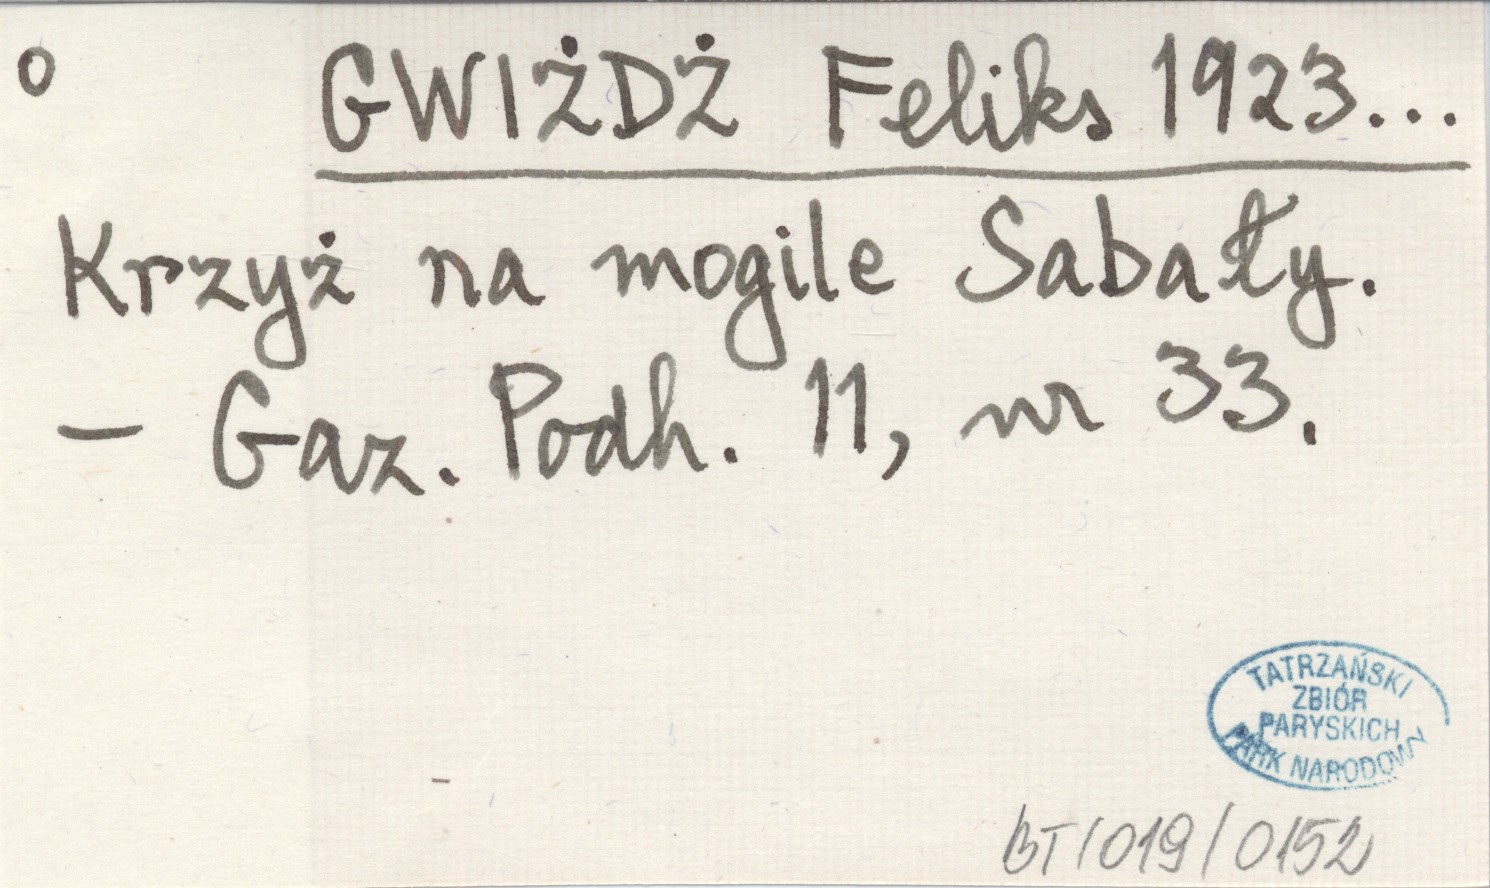 o GWIŻDŻ Feliks 1923...
Krzyż na mogile Sabały.
– Gaz. Podh. 11, nr 33.
TATRZAŃSKI
ZBIÓR
PARYSKICH
PARK NARODOWY
BT/019/0152